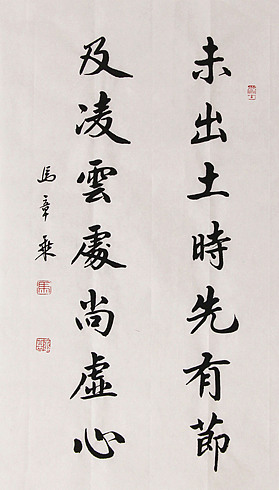 未出土時先有節
及凌雲處尚虛心
馬章乘